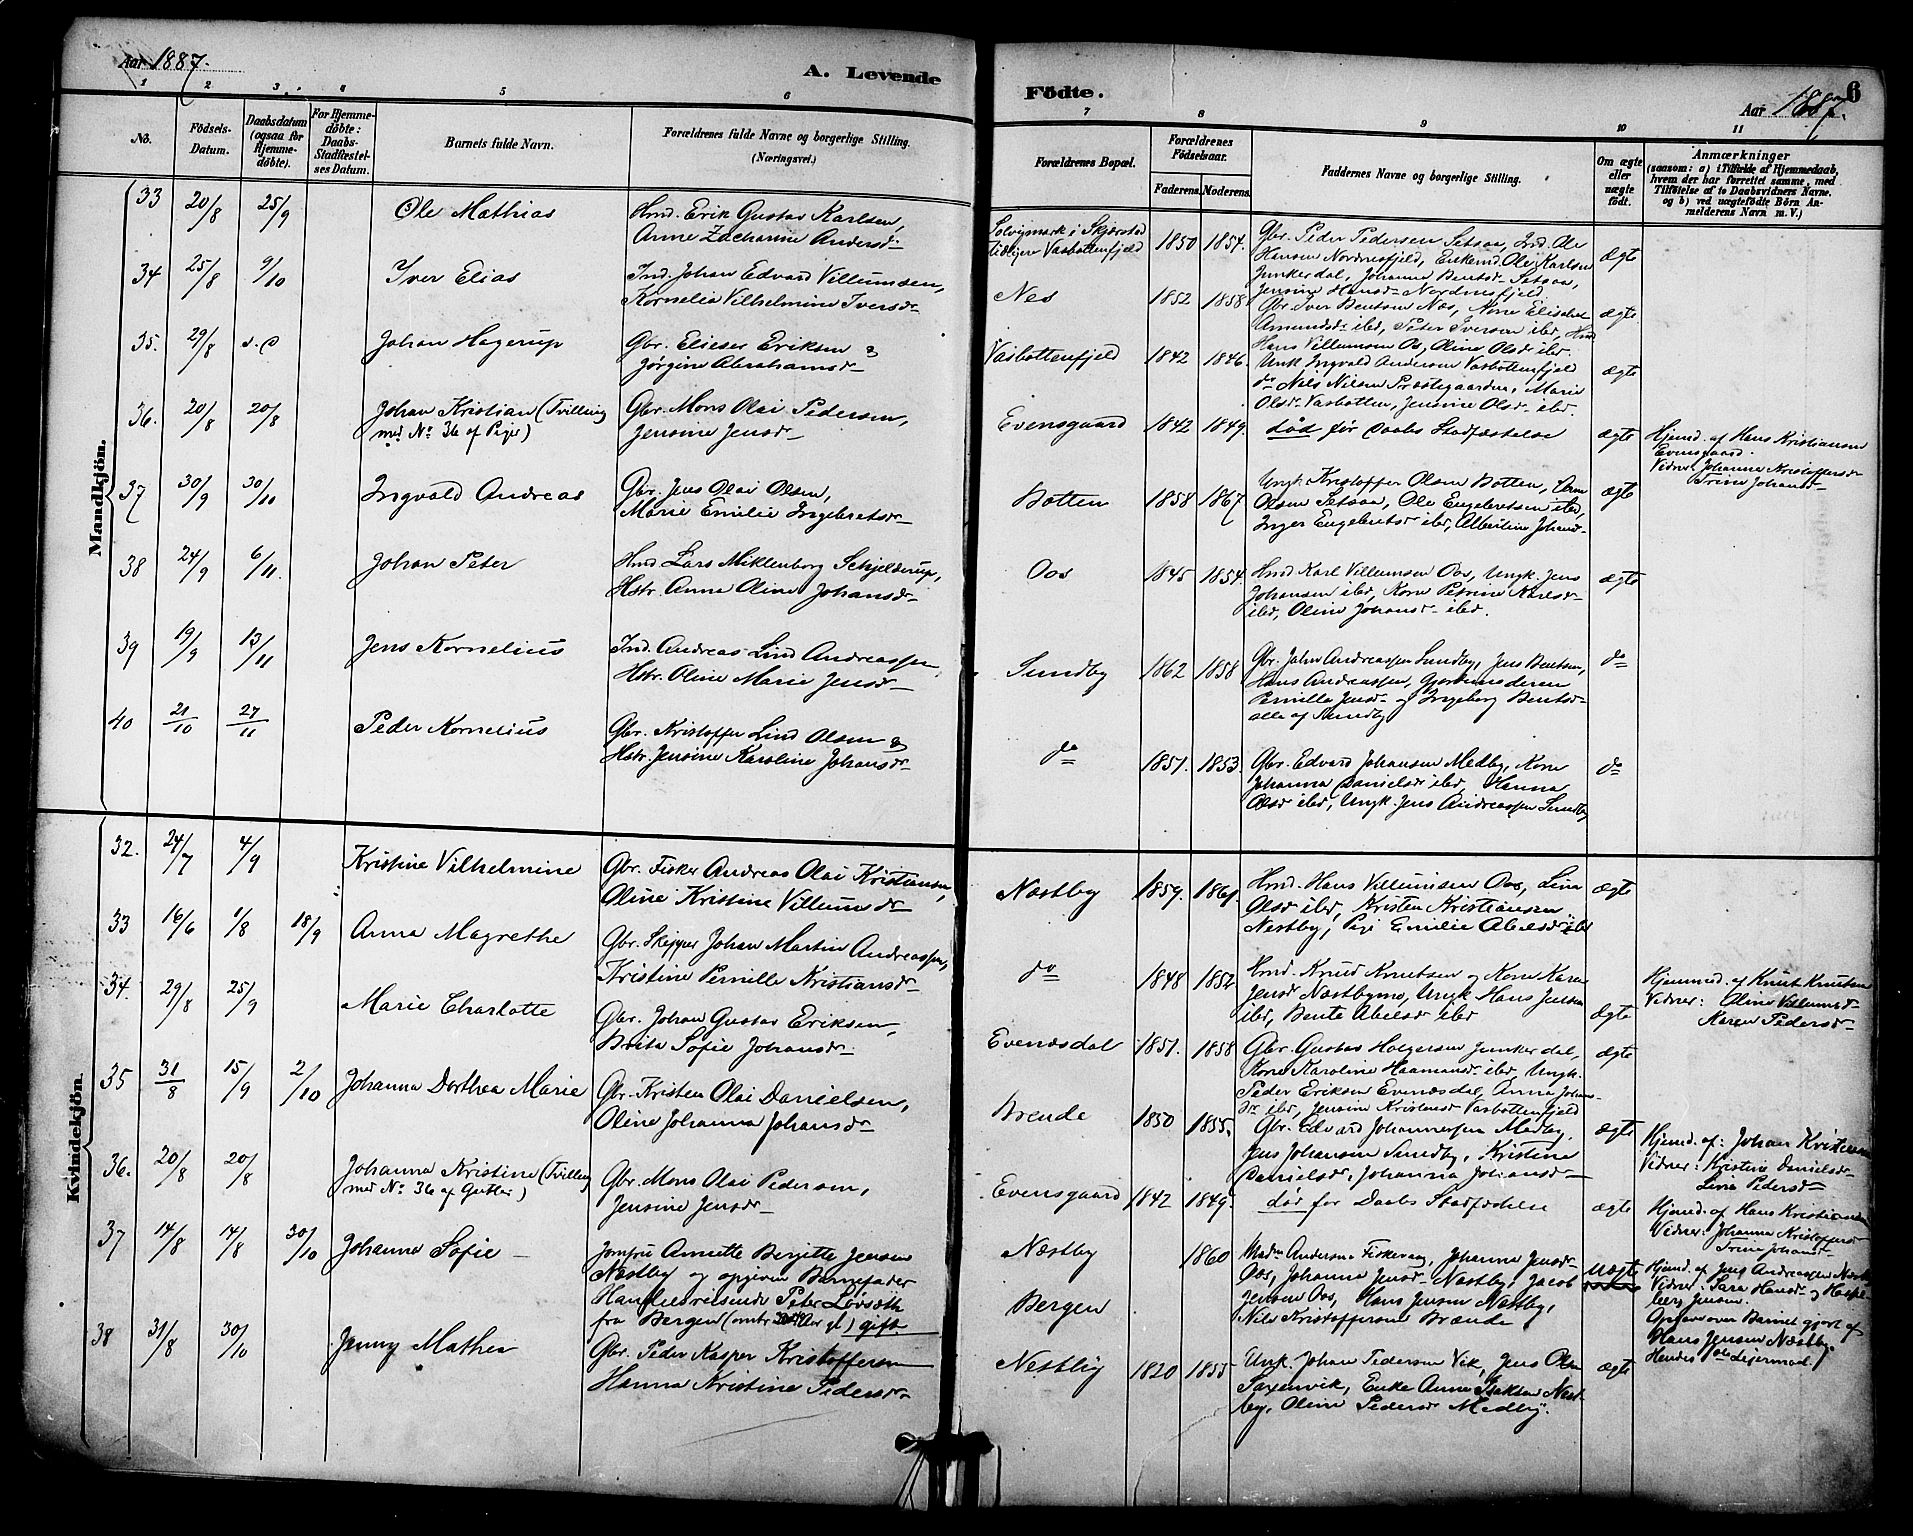 Aar 1887.
A. Levende
Födte.
Aar 1887.
6
1 2 3. 4 5 6
7 8 9 10 11
No.
Födsels-Datum.
Daabsdatum (ogsaa for Hjemmedöbte).
For Hjemmedöbte: Daabs-Stadfæstelses Datum.
Barnets fulde Navn.
Forældrenes fulde Navne og borgerlige Stilling.
(Næringsvei.)
Forældrenes Bopæl.
Forældrenes Födselsaar.
Faderens. Moderens.
Faddernes Navne og borgerlige Stilling.
Om ægte eller uægte födt.
Anmærkninger
(saasom: a) i Tilfælde af Hjemmedaab, hvem der har forrettet samme, med Tilföielse af to Daabsvidners Navne. og b) ved uægtefödte Börn Anmelderens Navn m. V.)
Mandkjön.
33 20/8 25/9 Ole Mathias
Ind. Erik Gustav Karlsen,
Anne Zacharine Andersd-
Solvigmark i Skjærstad
Tidligere Vasbottenfjeld
1850 1854.
Gbr. Peder Pedersen Setsaa, Ind. Ole
Hansen Nordnesfjeld, Enkemd. Ole Karlsen
Junkerdal, Johanna Bentsd- Setsaa,
Jensine Hansd- Nordnesfjeld
ægte
34 25/8 9/10 Iver Elias
Ind. Johan Edvard Villumsen,
Kornelia Vilhelmine Iversd-
Nes 1852 1858
Gbr. Iver Bentsen Næs, Kone Elisabet
Amundsd- ibd, Peter Iversen ibd, Hmd
Hans Villumsen Os, Oline Olsd- ibd.
ægte
35. 29/8 s. d Johan Hagerup
Gbr. Elieser Eriksen &
Jørgine Abrahamsd-
Vasbottenfjeld 1842 1846.
Unk Ingvald Andersen Vasbottenfjeld
do Nils Nilsen Prestegaarden, Marie
Olsd- Vasbotten, Jensine Olsd- ibd.
ægte
36. 20/8 20/8 Johan Kristian (Tvilling
med No 36 af Piger)
Gbr. Mons Olai Pedersen,
Jensine Jensd-
Evensgaard 1842 1849.
død før Daabs Stadfæstelse
ægte
Hjemd. af Hans Kristiansen
Evensgaard.
Vidner Johanna Kristoffersd-
Trine Johansd-
37 30/9 30/10 Ingvald Andreas
Gbr. Jens Olai Olsen,
Marie Emilie Ingebretsd-
Botten 1858 1867
Ungk. Kristoffer Olsen Botten,
Olsen Setsaa, Ole Engebretsen ibd,
Inger Engebretsd ibd, Albertine Johansd-
ægte
38 24/9 6/11. Johan Peter
Hmd Lars Miklenborg Schjelderup,
Hstr. Anna Oline Johansd-
Oos 1845 1854.
Hmd Karl Villumsen Oos, Ungk. Jens
Johansen ibd, Kone Petrine Karlsd-
ibd, Oline Johansd- ibd.
ægte
39 19/9 13/11 Jens Kornelius
Ind. Andreas Lind Andreassen
Hstr. Oline Marie Jensd-
Sundby 1862 1858
Gbr. John Andreassen Sundby, Jens Bentsen,
Hans Andreassen, Gjordemoderen
Pernilla Jensd- og Ingeborg Bentsd-
alle af Sundby
do
40 21/10 27/11 Peder Kornelius
Gbr. Kristoffer Lind Olsen &
Hstr. Jensine Karoline Johansd-
do 1851. 1853.
Gbr. Edvard Johansen Medby, Kone
Johanna Danielsd ibd, Hanna
Olsd ibd, Ungk. Jens Andreassen Sundby
do
Kvindekjön.
32. 24/7 4/9 Kristine Vilhelmine
Gbr. Fisker Andreas Olai Kristiansen,
Oline Kristine Villumsd-
Næstby 1859. 1861.
Hmd. Hans Villumsen Oos, Lina
Olsd ibd, Kristen Kristiansen
Nestby, Pige Emilie Abelsd ibd
ægte
33 16/6 1/8 18/9 Anna Magrethe
Gbr. Skipper Johan Martin Andreassen,
Kristine Pernille Kristiansd-
do 1848 1852
Hmd. Knud Knutsen og Kone Karen
Jensd Næstbymo, Ungk Hans Jensen
ibd, Bente Abelsd ibd
ægte
Hjemmed. af Knut Knutsen
Vidner: Oline Villumsd-
Karen Pedersd-
34. 29/8 25/9 Marie Charlotte
Gbr. Johan Gustav Eriksen,
Brita Sofie Johansd-
Evensdal 1851. 1858
Gbr. Gustav Holgersen Junkerdal,
Kone Karoline Haamansd- ibd, Ungk.
Peder Eriksen Evensdal, Anna Johans-
d- ibd, Jensine Kristensd Vasbottenfjeld
ægte
35 31/8 15/9 2/10 Johanna Dorthea Marie
Gbr. Kristen Olai Danielsen,
Oline Johanna Johansd-
Brende 1850 1855.
Gbr. Edvard Johannessen Medby,
Jens Johansen Sundby, Kristina
Danielsd, Johanna Johansd-
ægte
Hjemd. af: Johan Kristensen
Vidner: Kristine Danielsd-
Lina Pedersd-
36. 20/8 20/8 Johanna Kristine (Tvilling
med No 36 af Gutter)
Gbr. Mons Olai Pedersen,
Jensine Jensd-
Evensgaard 1842 1849.
død før Daabs Stadfæstelse
ægte
Hjemd. af Hans Kristiansen
Vidner: Johanna Kristoffersd-
Trine Johansd-
37 14/8 14/8 30/10 Johanna Sofie
Jomfru Annette Bergitte Jensen
Nestby og opgiven Barnefader
Handelsreisende Peter Løvseth
fra Bergen (omtr. Aar gl) gift.
Næstby
Bergen
1860
Mad. Andersen Fiskevaag, Johanna Jensd-
Oos, Johanna Jensd- Nastby, Jacob
Jensen Oos, Hans Jensen Nestby,
Nils Kristoffersen Brænde
uægte
Hjemd. af Jens Andreassen Næstby
Vidner: Sara Hansd- og
Jensen.
Opgave over Barnet gjort af
Hans Jensen Næstby.
Hendes Leiermaal.
38 31/8 30/10 Jenny Mathea
Gbr. Peder Kasper Kristoffersen
Hanna Kristine Pedersd-
Nestby 1820 1855
Unk. Johan Pedersen Vik, Jens Olsen
Saxenvik, Enke Anne Isaksen Næst-
by, Oline Pedersd Medby.
ægte